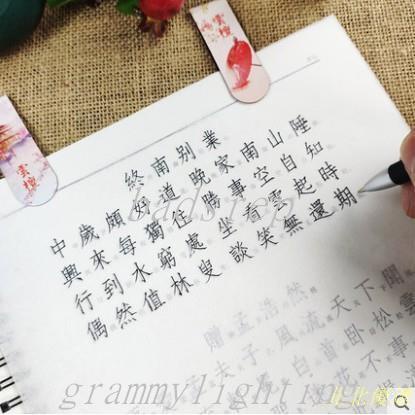 終南別業
中歲頗好道晚家南山陲
興來每獨往勝事空自知
行到水窮處坐看雲起時
偶然值林叟談笑無還期
贈孟浩然
夫子風流天下聞
白首臥松雲
花不事
grammylighting